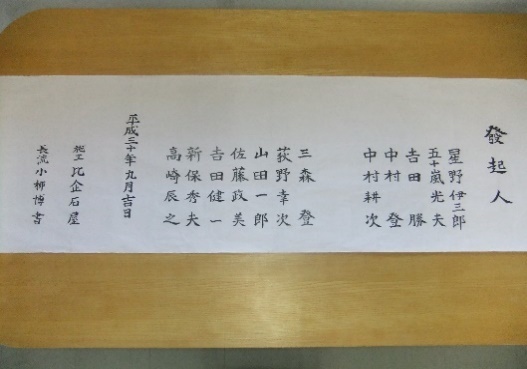 發起人
星野伊三郎
五十嵐光夫
吉田勝
中村登
中村耕次
三森登
荻野幸次
山田一郎
佐藤政美
吉田健一
新保秀夫
高崎辰之
平成三十年九月吉日
施工 比企石屋
長流 小柳博書